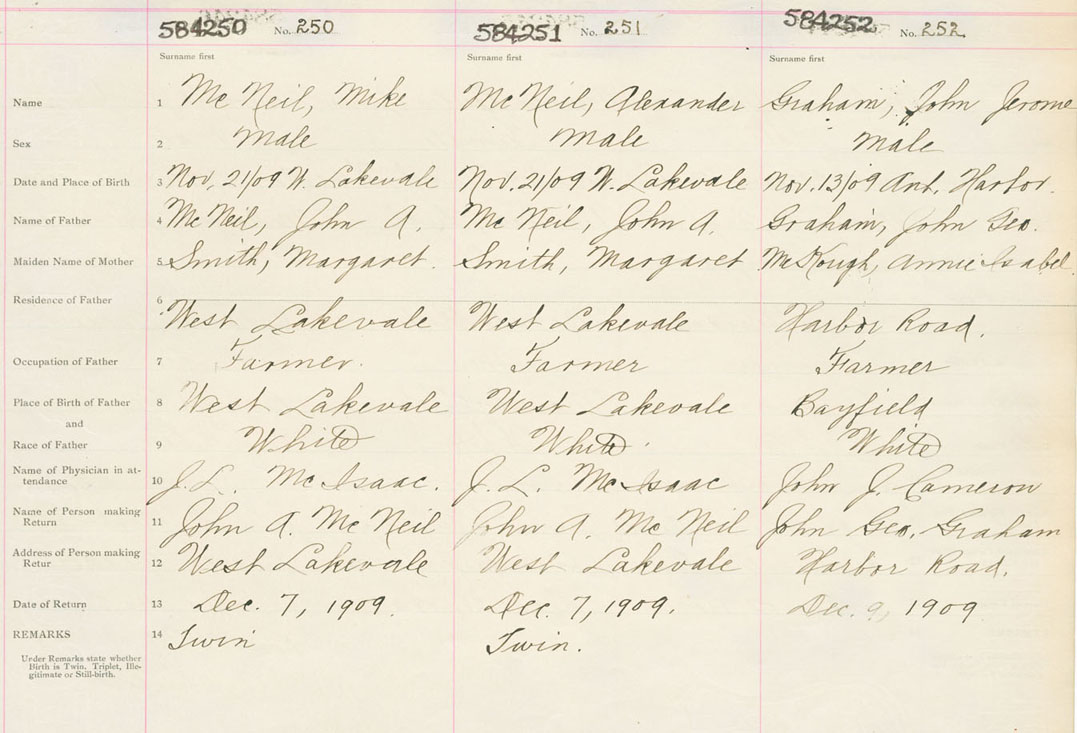 584250 No. 250 584251 No. 251 584252 No. 252
Surname first Surname first Surname first
Name 1 Mc Neil, Mike Mc Neil, Alexander Graham, John Jerome
Sex 2 Male Male Male
Date and Place of Birth 3 Nov. 21/09 W. Lakevale Nov. 21/09 W. Lakevale Nov. 13/09 Ant. Harbor.
Name of Father 4 Mc Neil, John A. Mc Neil, John A. Graham, John Geo.
Maiden Name of Mother 5 Smith, Margaret. Smith, Margaret McKough, Annie Isabel
Residence of Father 6 West Lakevale West Lakevale Harbor Road.
Occupation of Father 7 Farmer. Farmer Farmer
Place of Birth of Father 8 West Lakevale West Lakevale Bayfield
and
Race of Father 9 White White White
Name of Physician in at-
tendance 10 J. L. McIsaac. J. L. McIsaac John J. Cameron
Name of Person making
Return 11 John A. Mc Neil John A. Mc Neil John Geo. Graham
Address of Person making
Retur 12 West Lakevale West Lakevale Harbor Road.
Date of Return 13 Dec. 7, 1909. Dec. 7, 1909. Dec. 9, 1909
REMARKS 14 Twin Twin.
Under Remarks state whether
Birth is Twin. Triplet, Ille-
gitimate or Still-birth.